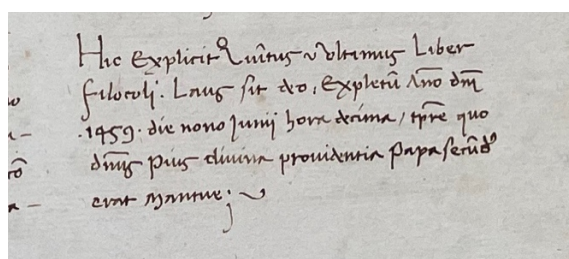 Hic Explicit Quĩtus & Vltimus Liber
filocoli. Laus sit deo, Expletũ Año dñi
.1459. die nono Junii hora decima, tp̃re quo
dñus Pius divina providentia Papa secũdꝰ
erat Mantue;